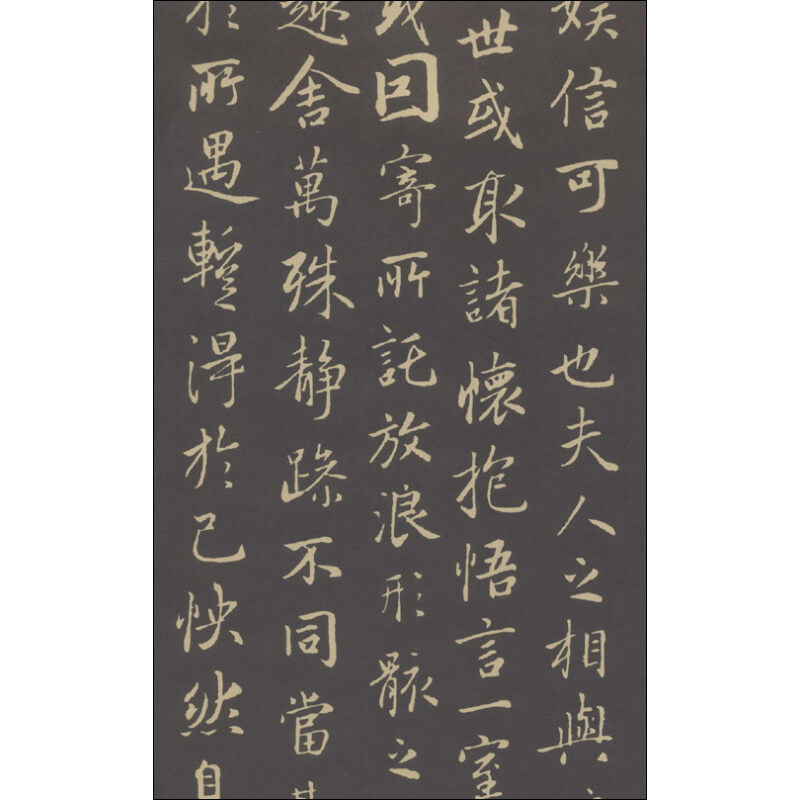 娛信可樂也夫人之相與
世或取諸懷抱悟言一室
或因寄所託放浪形骸之
趣舍萬殊静躁不同當其
於所遇暫得於己怏然自